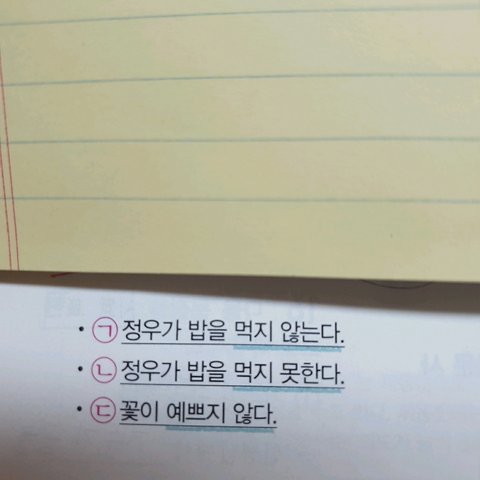 • ㉠ 정우가 밥을 먹지 않는다.
• ㉡ 정우가 밥을 먹지 못한다.
• ㉢ 꽃이 예쁘지 않다.